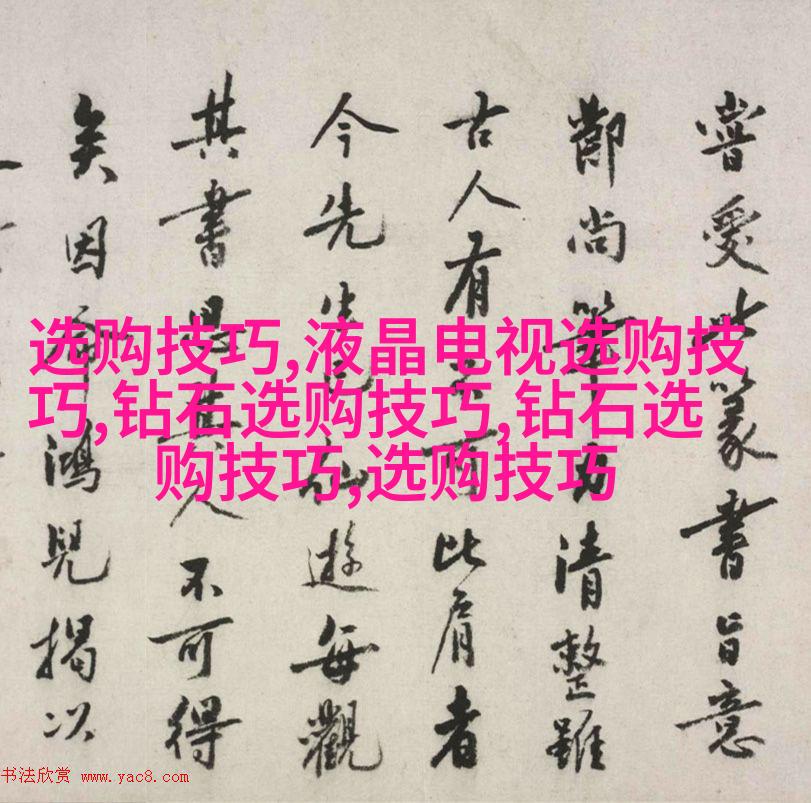 选购技巧,液晶电视选购技
巧,钻石选购技巧,钻石选
购技巧,选购技巧
甞受篆書旨意
尚筆力清整雖
古人有比肩者
今先生已仙遊每觀
其書思其人不可得
矣因鴻兒揭以
书法欣赏 www.yac8.com